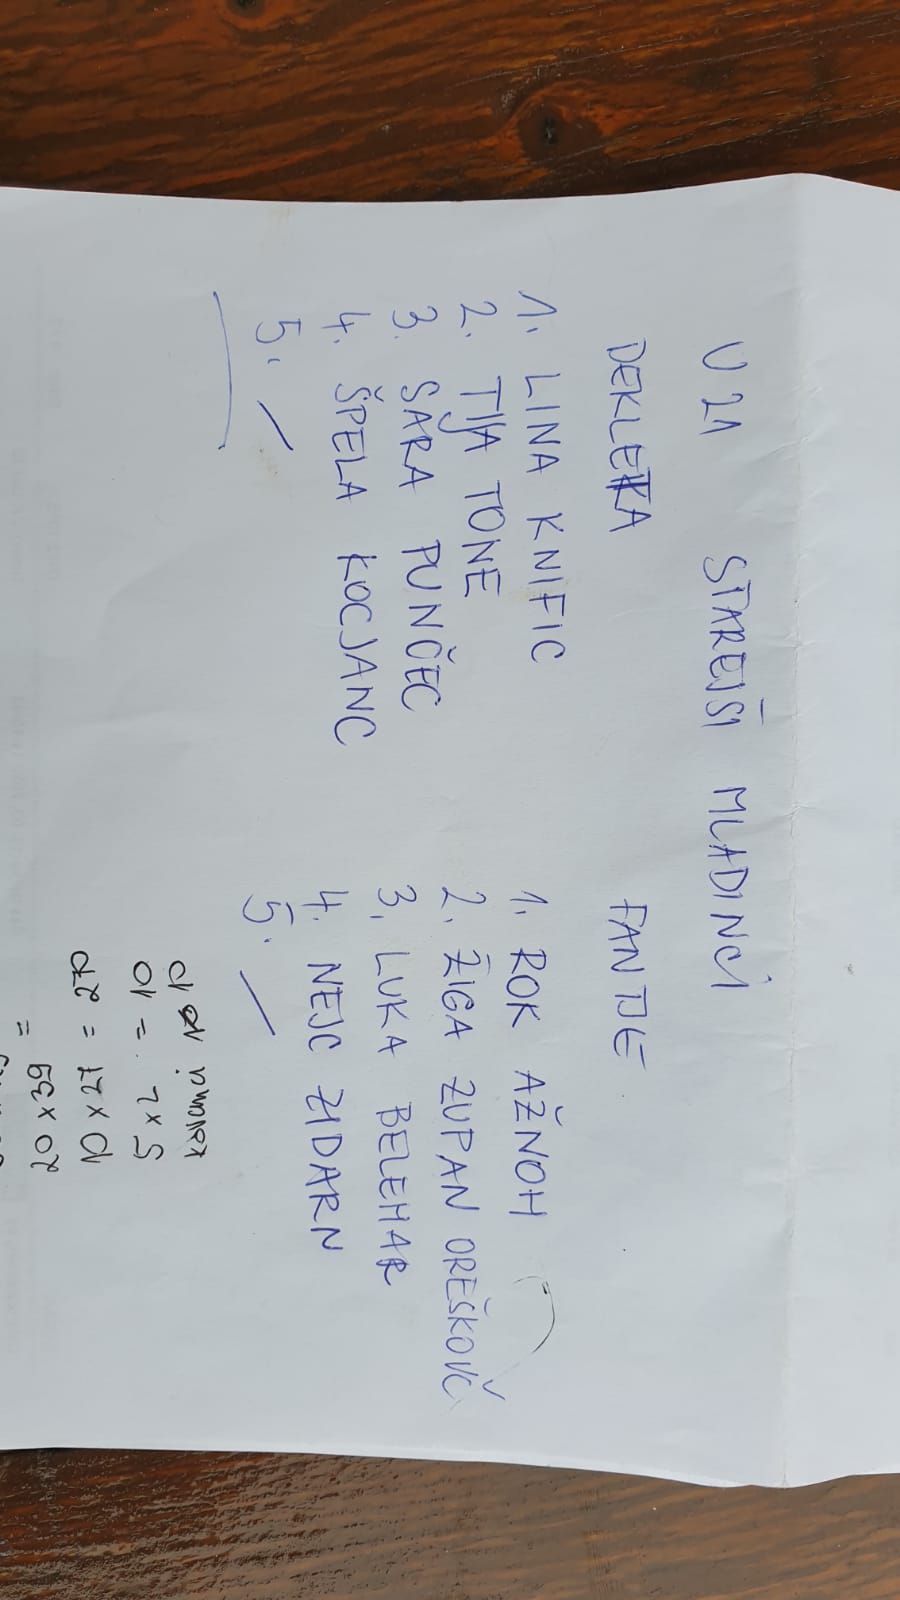 U21 STAREJŠI MLADINCI
DEKLETA
1. LINA KNIFIC
2. TIJA TONE
3. SARA PUNČEC
4. ŠPELA KOCJANC
5. /
FANTJE
1. ROK AŽNOH
2. ŽIGA ZUPAN OREŠKOVČ
3. LUKA BELEHAR
4. NEJC ŽIDARN
5. /
kovanci 10
5 x 2 = 10
10 x 27 = 270
20 x 39 =